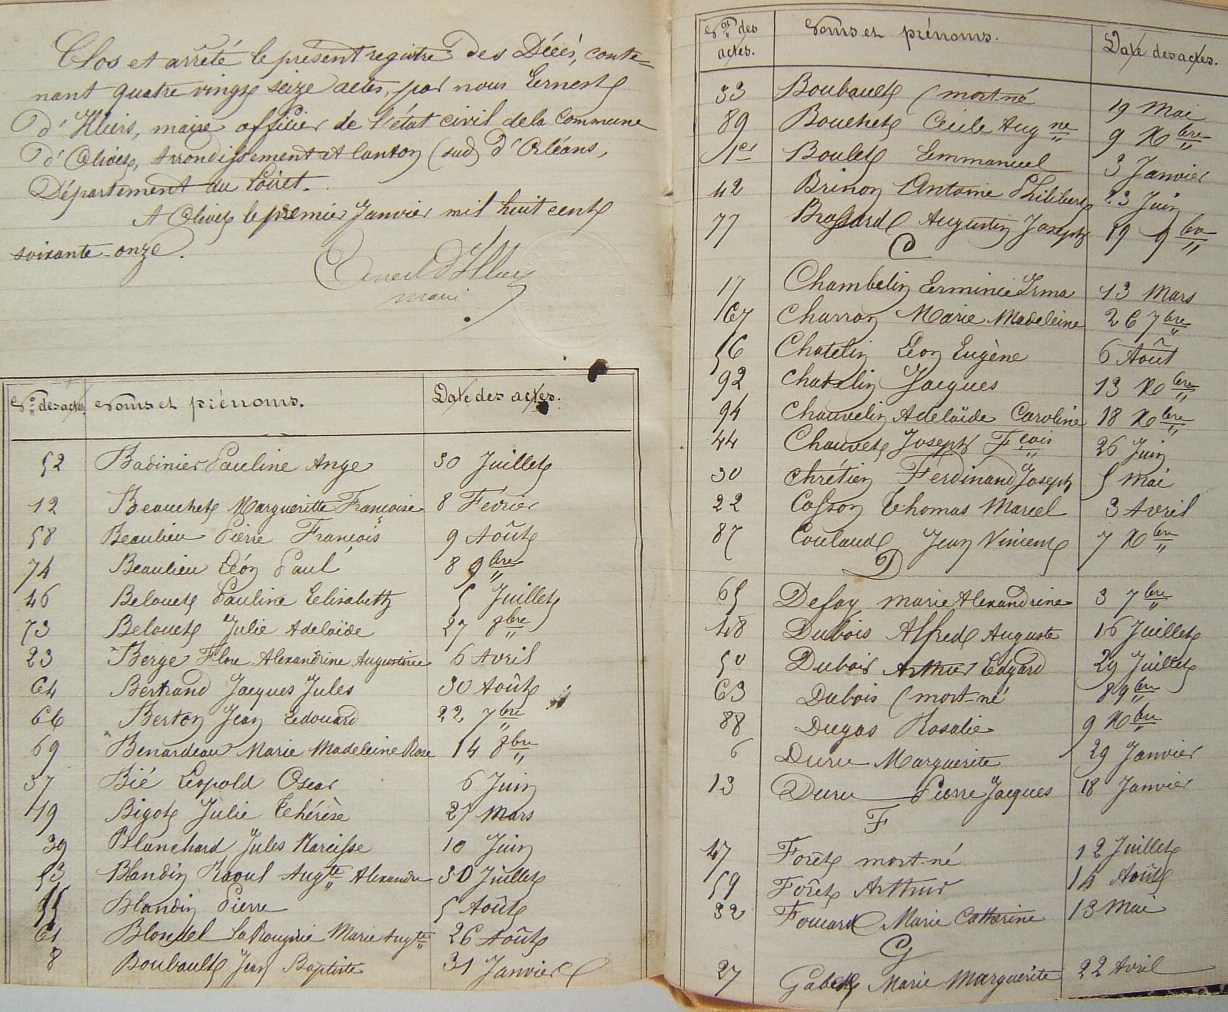 Clos et arrêté le présent registre des Décès, conte=
nant quatre vingt seize actes, par nous Ernest
d'Illiers, maire officier de l'état civil de la Commune
d'Olivet, arrondissement et Canton (sud) d'Orléans,
Département du Loiret.
A Olivet le premier Janvier mil huit cent
soixante-onze.
Ernest d'Illiers
maire
Nos des actes. Noms et prénoms. Date des actes.
52 Badinier Pauline Ange 30 Juillet
12 Beauchet Marguerite Françoise 8 Février
58 Beaulieu Pierre François 9 Août
74 Beaulieu Léon Paul 8 9bre
46 Belouet Pauline Elisabeth 5 Juillet
73 Belouet Julie Adelaïde 27 8bre
23 Berge Flore Alexandrine Augustine 6 Avril
64 Bertrand Jacques Jules 30 Août
66 Berton Jean Edouard 22 7bre
69 Benardeau Marie Madeleine Rose 14 8bre
37 Bié Léopold Oscar 6 Juin
19 Bigot Julie Thérèse 27 Mars
39 Blanchard Jules Narcisse 10 Juin
53 Blandin Raoul Augte Alexandre 30 Juillet
55 Blandin Pierre 5 Août
61 Blondel Marie Augte 26 Août
8 Boubault Jean Baptiste 31 Janvier
Nos des actes. Noms et prénoms. Date des actes.
33 Boubault (mort-né 19 Mai
89 Bouchet Cecile Augne 9 Xbre
1er Boulet Emmanuel 3 Janvier
42 Brinon Antoine Philibert 23 Juin
77 Brossard Augustin Joseph 19 9bre
C
17 Chambelin Erminie Irma 13 Mars
67 Charron Marie Madeleine 26 7bre
56 Chatelin Léon Eugène 6 Août
92 Chatelin Jacques 13 Xbre
94 Chauvelin Adelaïde Caroline 18 Xbre
44 Chauvet Joseph Fçois 26 Juin
30 Chrétien Ferdinand Joseph 5 Mai
22 Cosson Thomas Marcel 3 Avril
87 Coutaud Jean Vincent 7 Xbre
D
65 Defay Marie Alexandrine 3 7bre
48 Dubois Alfred Auguste 16 Juillet
50 Dubois Arthur Edgard 29 Juillet
63 Dubois (mort-né 8bre
88 Dugas Rosalie 9 Xbre
6 Duru Marguerite 29 Janvier
13 Duru Pierre Jacques 18 Janvier
F
47 Forêt mort-né 12 Juillet
59 Forêt Arthur 14 Août
32 Foucard Marie Catherine 13 Mai
G
27 Marie Marguerite 22 Avril